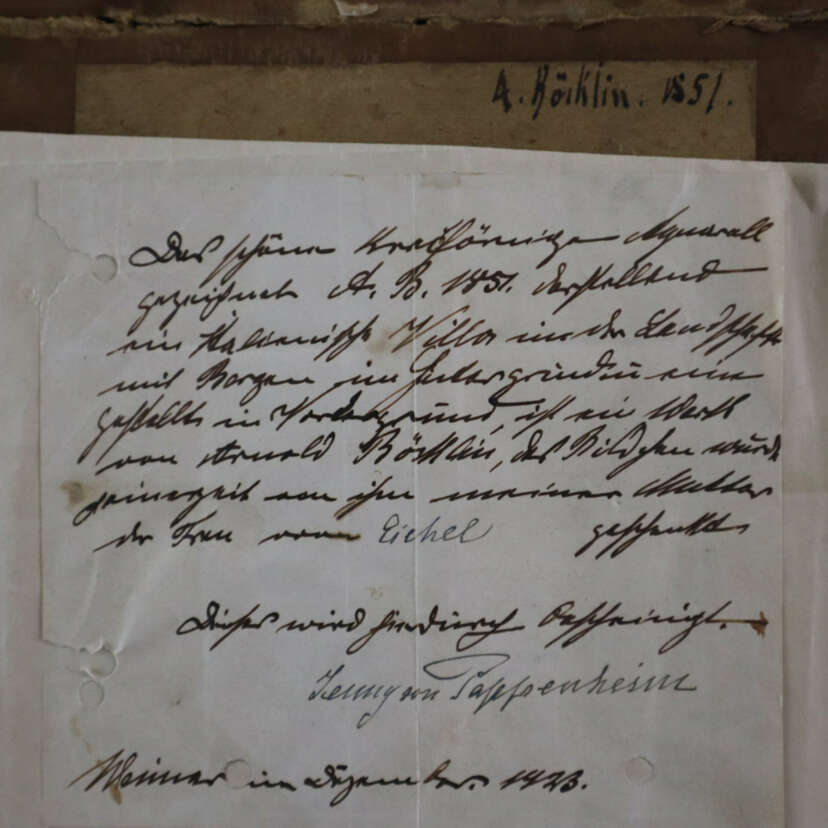 A. Böcklin. 1851.
Das schöne Kreisförmige Aquarell
gezeichnet A. B. 1851. darstellend
ein Italienische Villa in der Landschaft
mit Bergen im Hintergrund u eine
gestellt in Vordergrund, ist ein Werk
von Arnold Böcklin, das Bildchen wurde
seinerzeit von ihm meiner Mutter
der Frau von Eichel geschenkt
Dieses wird hierdurch bescheinigt.
Jenny von Pappenheim
Weimar im Dezember. 1923.